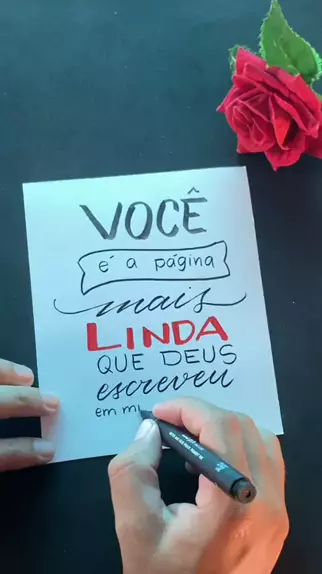 VOCÊ
é a página
mais
LINDA
QUE DEUS
escreveu
em mi